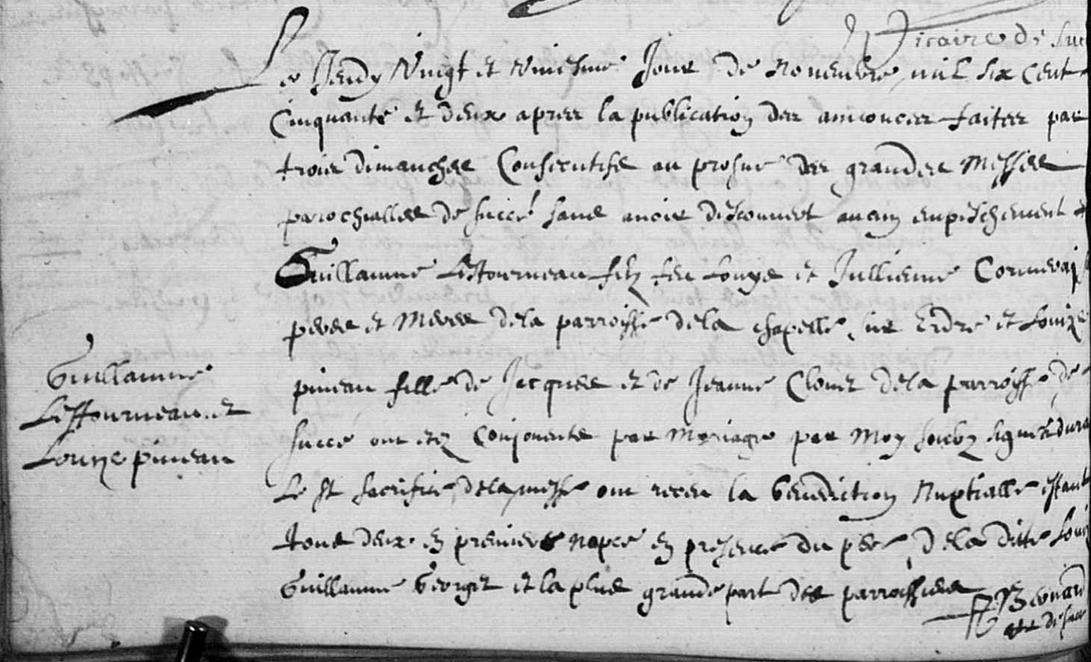 Vicaire de Suc
Le Jeudy Vingt et uniesme Jour de Novembre mil six cent
Cinquante et deux apres la publication des annonces faites par
trois dimanches Consecutifs au prosne des grandes Messes
parochialles de succé sans avoir descouvert aucun enpeschement
Guillaume Lestourneau filz feu Louys et Jullienne
peres et Meres de la parroisse de la chapelle sur Erdre et Louize
pineau fille de Jacques et de Jeanne Clouet de la parroisse de
succe ont etez Conjoincts par Mariage par Moy soubz signé et dura
Le st sacrifice de la messe ont receu la benediction Nuptialle estant
tous deux en premiere nopce en presence du pere de la ditte Loui
Guillaume Georget et la plus grande part des parroissiens
Guillaume
Lestourneau et
Louize pineau